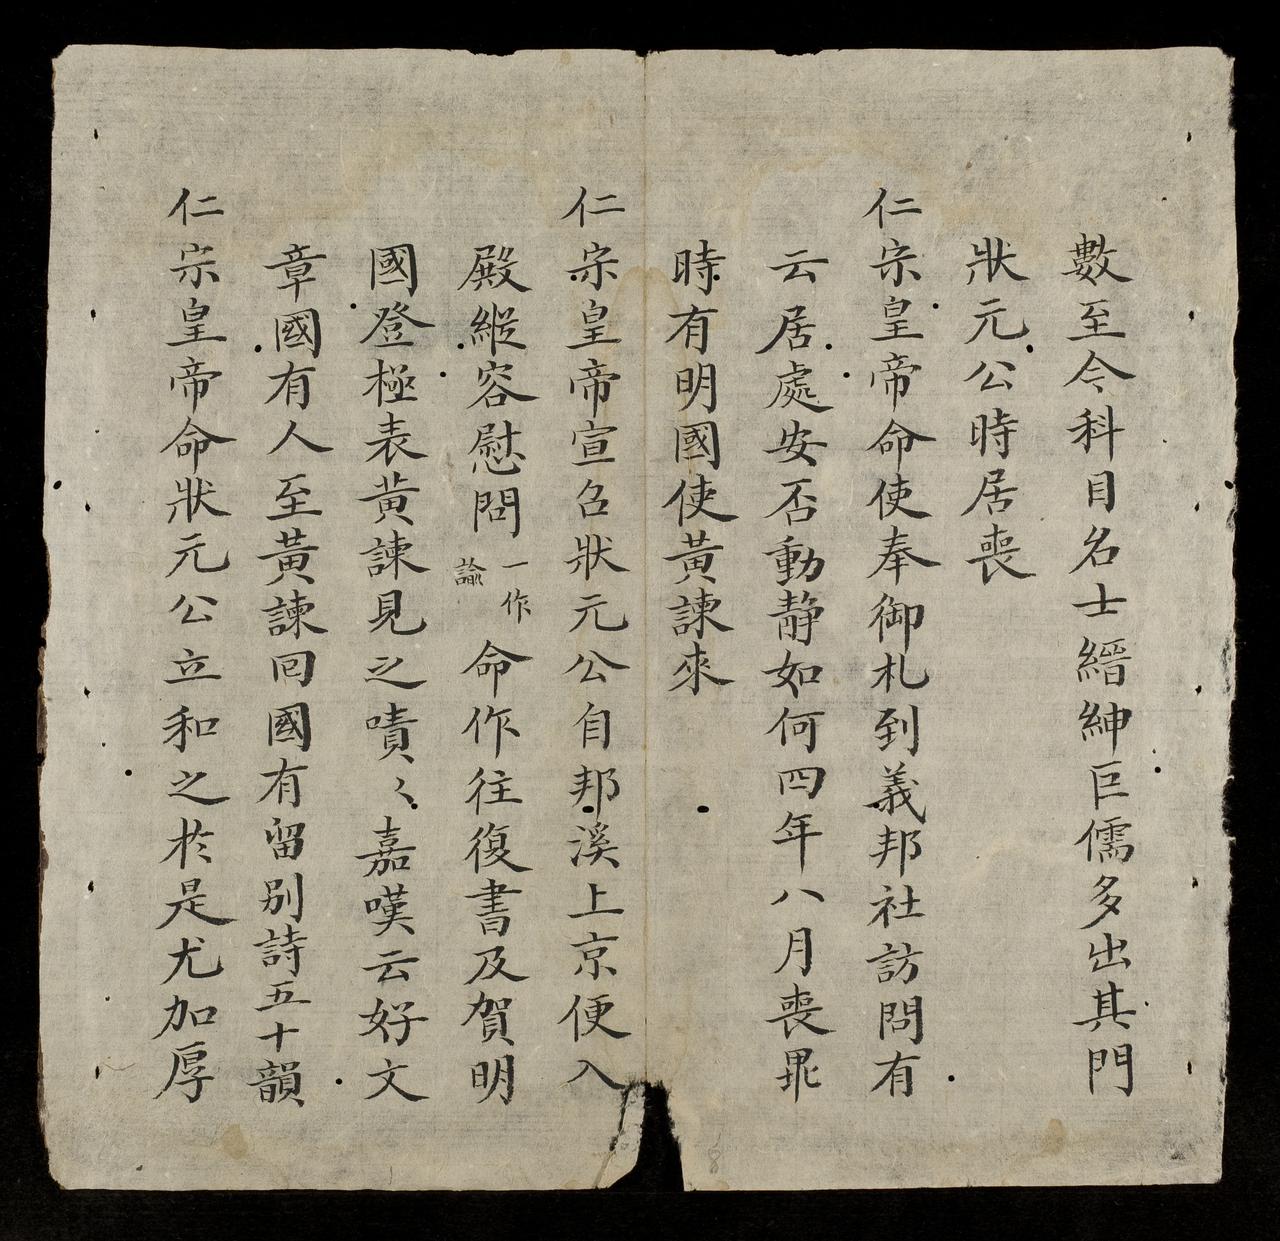 數至今科目名士縉紳巨儒多出其門
狀元公時居喪
仁宗皇帝命使奉御札到義邦社訪問有
云居處安否動静如何四年八月喪畢
時有明國使黃諫來
仁宗皇帝宣召狀元公自邦溪上京便入
殿縱容慰問一作諭命作往復書及賀明
國登極表黃諫見之嘖〻嘉嘆云好文
章國有人至黃諫囘國有留别詩五十韻
仁宗皇帝命狀元公立和之於是尤加厚